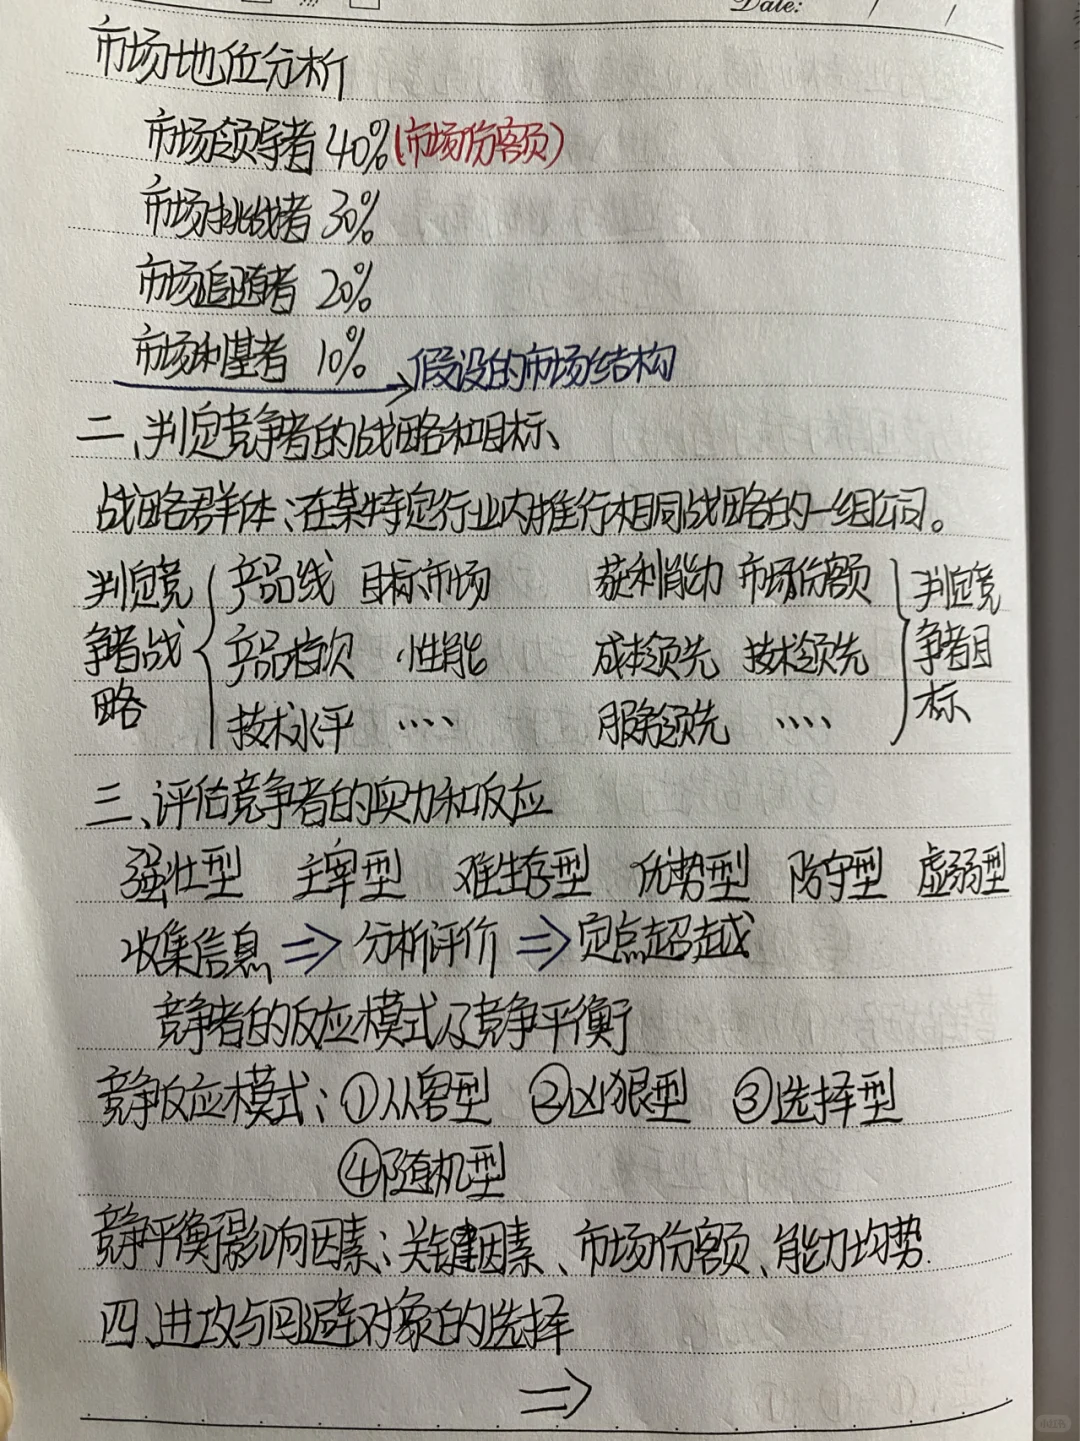 Date: / /
市场地位分析
市场领导者 40%(市场份额)
市场挑战者 30%
市场追随者 20%
市场利基者 10% → 假设的市场结构
二、判定竞争者的战略和目标、
战略群体:在某特定行业内推行相同战略的一组公司。
判定竞 产品线 目标市场 获利能力 市场份额 判定竞
争者战 产品档次 性能 成本领先 技术领先 争者目
略 技术水平 …. 服务领先 …. 标
三、评估竞争者的实力和反应
强壮型 主宰型 难生存型 优势型 防守型 虚弱型
收集信息 ⇒ 分析评价 ⇒ 定点超越
竞争者的反应模式及竞争平衡
竞争反应模式:①从容型 ②凶狠型 ③选择型
④随机型
竞争平衡影响因素:关键因素、市场份额、能力均势.
四、进攻与回避对象的选择
⇒
小红书